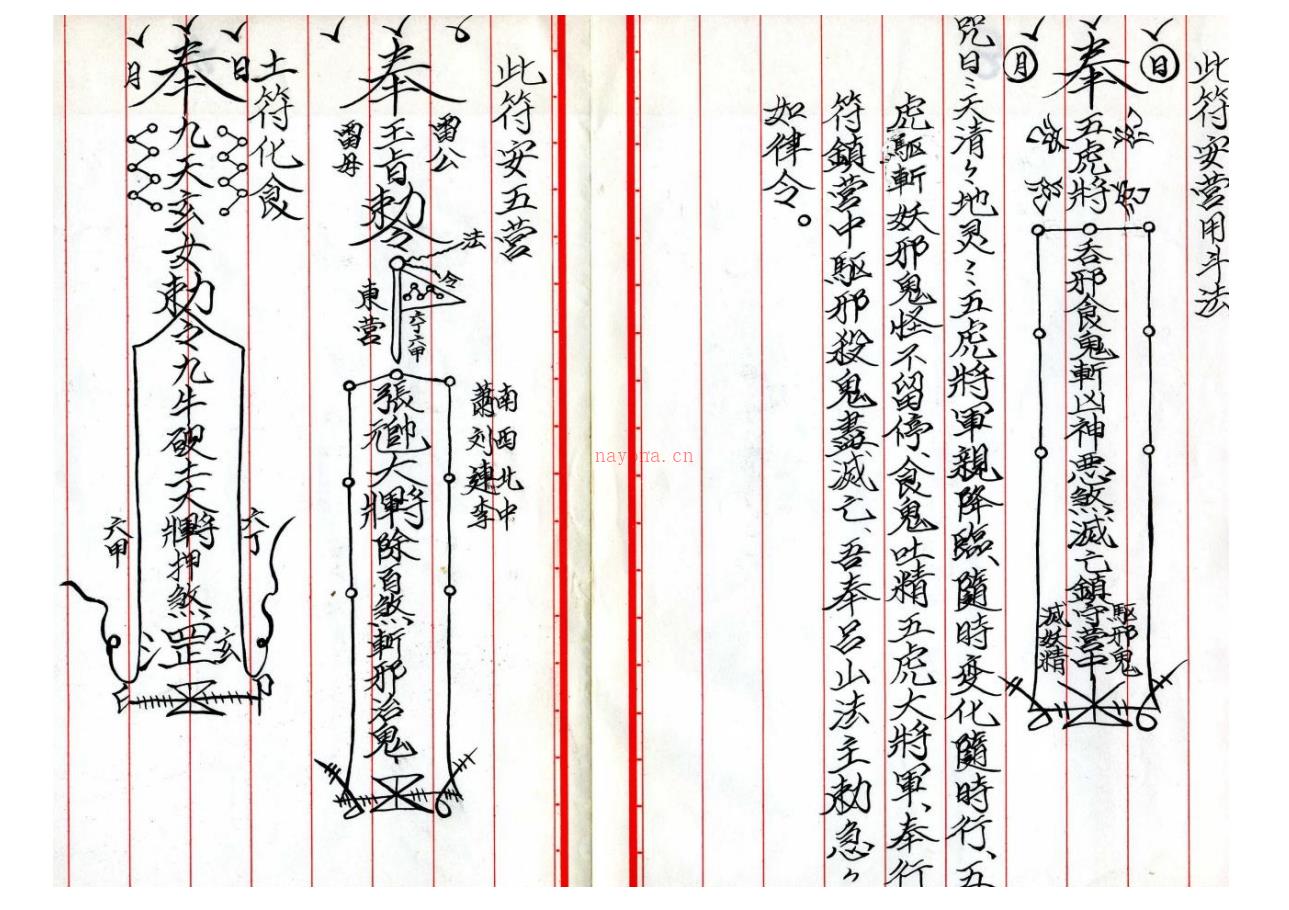 此符安营用斗法
日 奉 月
五虎將
吞邪食鬼斬凶神惡煞滅亡鎮守营中
駆邪鬼
滅妖精
咒曰天清々地灵々五虎將軍親降臨、隨時変化隨時行、五
虎駆斬妖邪鬼怪不留停、食鬼吐精五虎大將軍、奉行
符鎮营中駆邪殺鬼盡滅亡、吾奉呂山法主勅急々
如律令。
此符安五营
奉
雷公
玉旨勅令
雷母
法
令
東营
六甲
南西北中
蕭刘連李
張
大將
除百煞斬邪治鬼
土符化食
日 奉 月
九天玄女勅令九牛破土大將押煞罡
六丁
六甲
nayona.cn